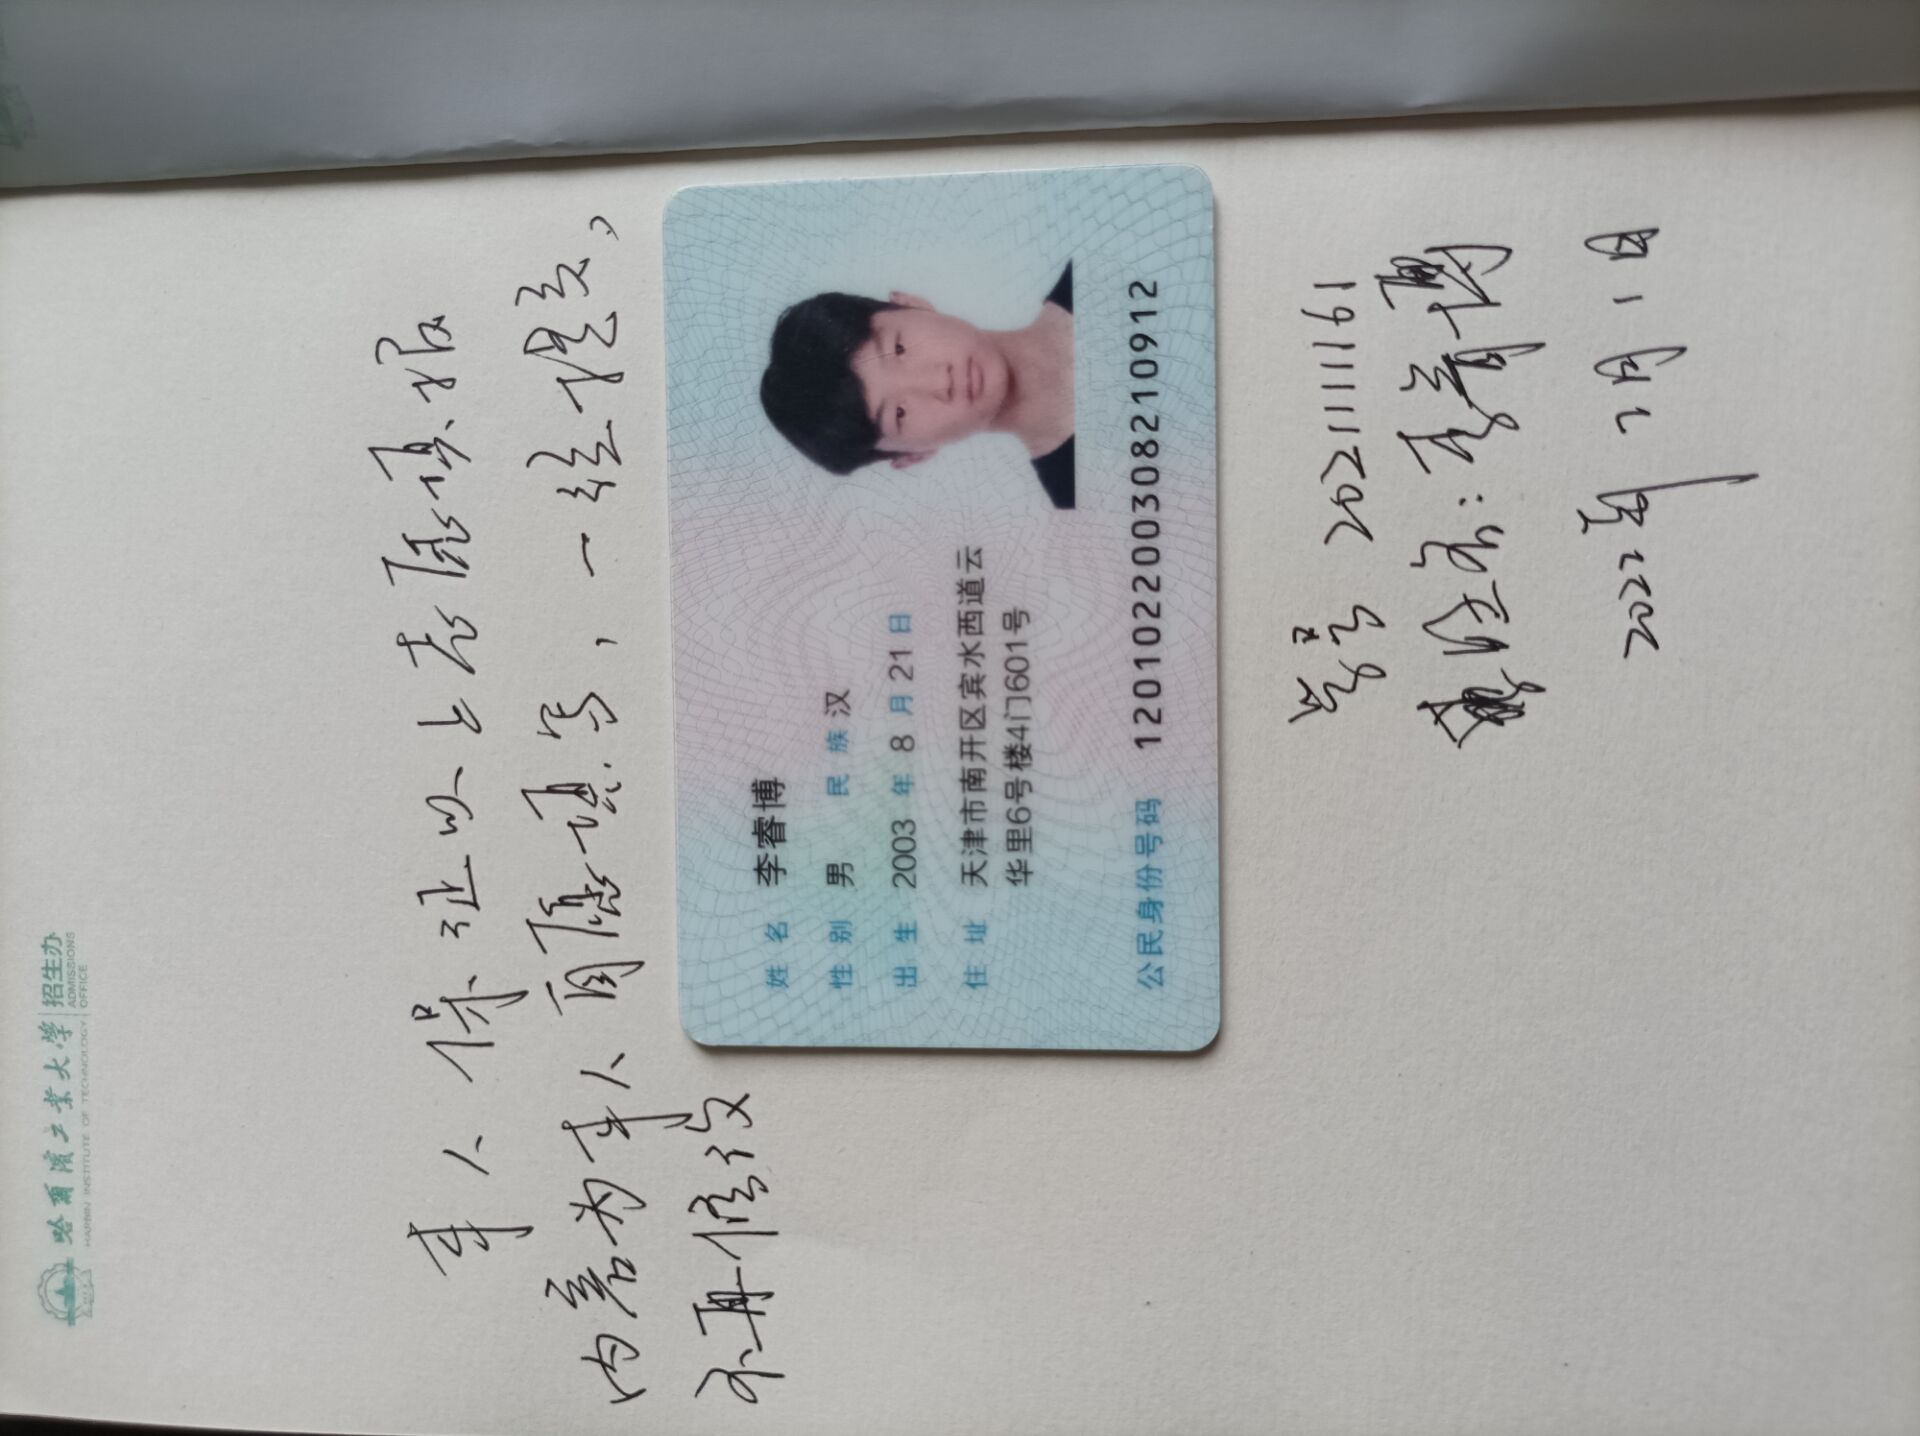 哈爾濱工業大学 招生办
HARBIN INSTITUTE OF TECHNOLOGY ADMISSIONS OFFICE
本人保证以上志愿填报
内容为本人自愿填写，一经提交，
不再修改
姓名 李睿博
性别 男 民族 汉
出生 2003 年 8 月 21 日
住址 天津市南开区宾水西道云
华里6号楼4门601号
公民身份号码 120102200308210912
学号 2021111161
签名：李睿博
2022年 7月 1日